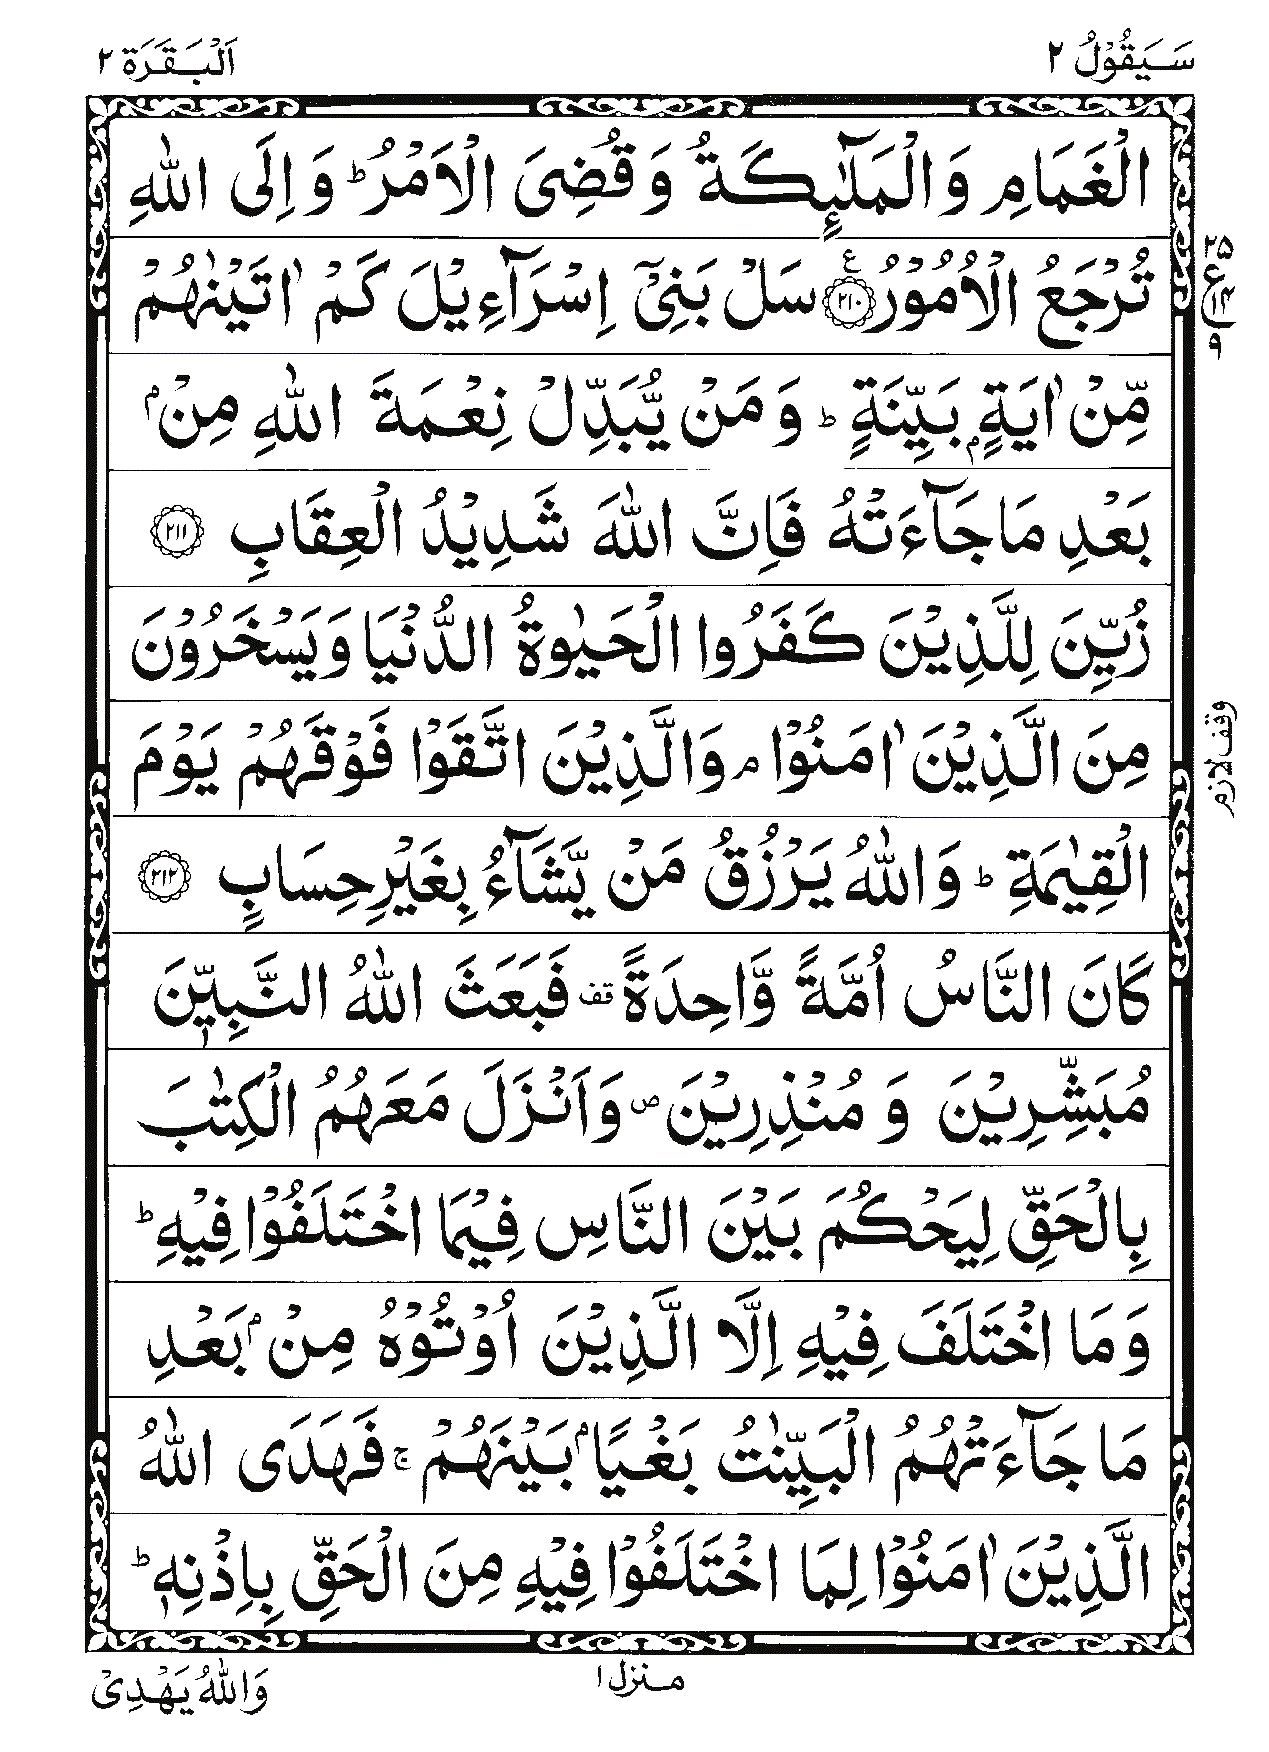 سَيَقُوْلُ ٢
اَلْبَقَرَة ٢
الْغَمَامِ وَ الْمَلٰٓئِكَةُ وَ قُضِیَ الْاَمْرُ ؕ وَ اِلَی اللّٰهِ
تُرْجَعُ الْاُمُوْرُ ﴿٢١٠﴾ ع سَلْ بَنِیْۤ اِسْرَآءِیْلَ كَمْ اٰتَیْنٰهُمْ
٢٥
ع
١٤
٩
مِّنْ اٰیَةٍۭ بَیِّنَةٍ ؕ وَ مَنْ یُّبَدِّلْ نِعْمَةَ اللّٰهِ مِنْۢ
بَعْدِ مَا جَآءَتْهُ فَاِنَّ اللّٰهَ شَدِیْدُ الْعِقَابِ ﴿٢١١﴾
زُیِّنَ لِلَّذِیْنَ كَفَرُوا الْحَیٰوةُ الدُّنْیَا وَیَسْخَرُوْنَ
مِنَ الَّذِیْنَ اٰمَنُوْا ۘ وَالَّذِیْنَ اتَّقَوْا فَوْقَهُمْ یَوْمَ
وقف لازم
الْقِیٰمَةِ ؕ وَ اللّٰهُ یَرْزُقُ مَنْ یَّشَآءُ بِغَیْرِ حِسَابٍ ﴿٢١٢﴾
كَانَ النَّاسُ اُمَّةً وَّاحِدَةً قف فَبَعَثَ اللّٰهُ النَّبِیّٖنَ
مُبَشِّرِیْنَ وَ مُنْذِرِیْنَ ص وَاَنْزَلَ مَعَهُمُ الْكِتٰبَ
بِالْحَقِّ لِیَحْكُمَ بَیْنَ النَّاسِ فِیْمَا اخْتَلَفُوْا فِیْهِ ؕ
وَمَا اخْتَلَفَ فِیْهِ اِلَّا الَّذِیْنَ اُوْتُوْهُ مِنْۢ بَعْدِ
مَا جَآءَتْهُمُ الْبَیِّنٰتُ بَغْیًۢا بَیْنَهُمْ ۚ فَهَدَی اللّٰهُ
الَّذِیْنَ اٰمَنُوْا لِمَا اخْتَلَفُوْا فِیْهِ مِنَ الْحَقِّ بِاِذْنِهٖ ؕ
منزل ١
وَاللّٰهُ یَهْدِیْ